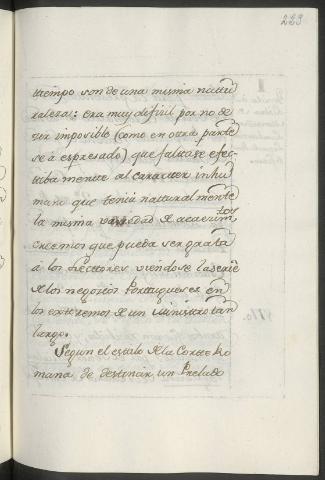 233
tiempo son de una misma natu
raleza: era muy dificil por no de
zir imposible (como en outra parte
se á espresado) que faltase efec
tibamente al caracter inhu
mano que tenia naturalmente
la misma variedad de acaecimtos
creemos que pueda ser grata
á los Lectores viendose la serie
de los negocios Portugueses en
los extremos de un Ministro tan
largo.
Segun el estilo de la Corte Ro
mana de destinar un Prelado